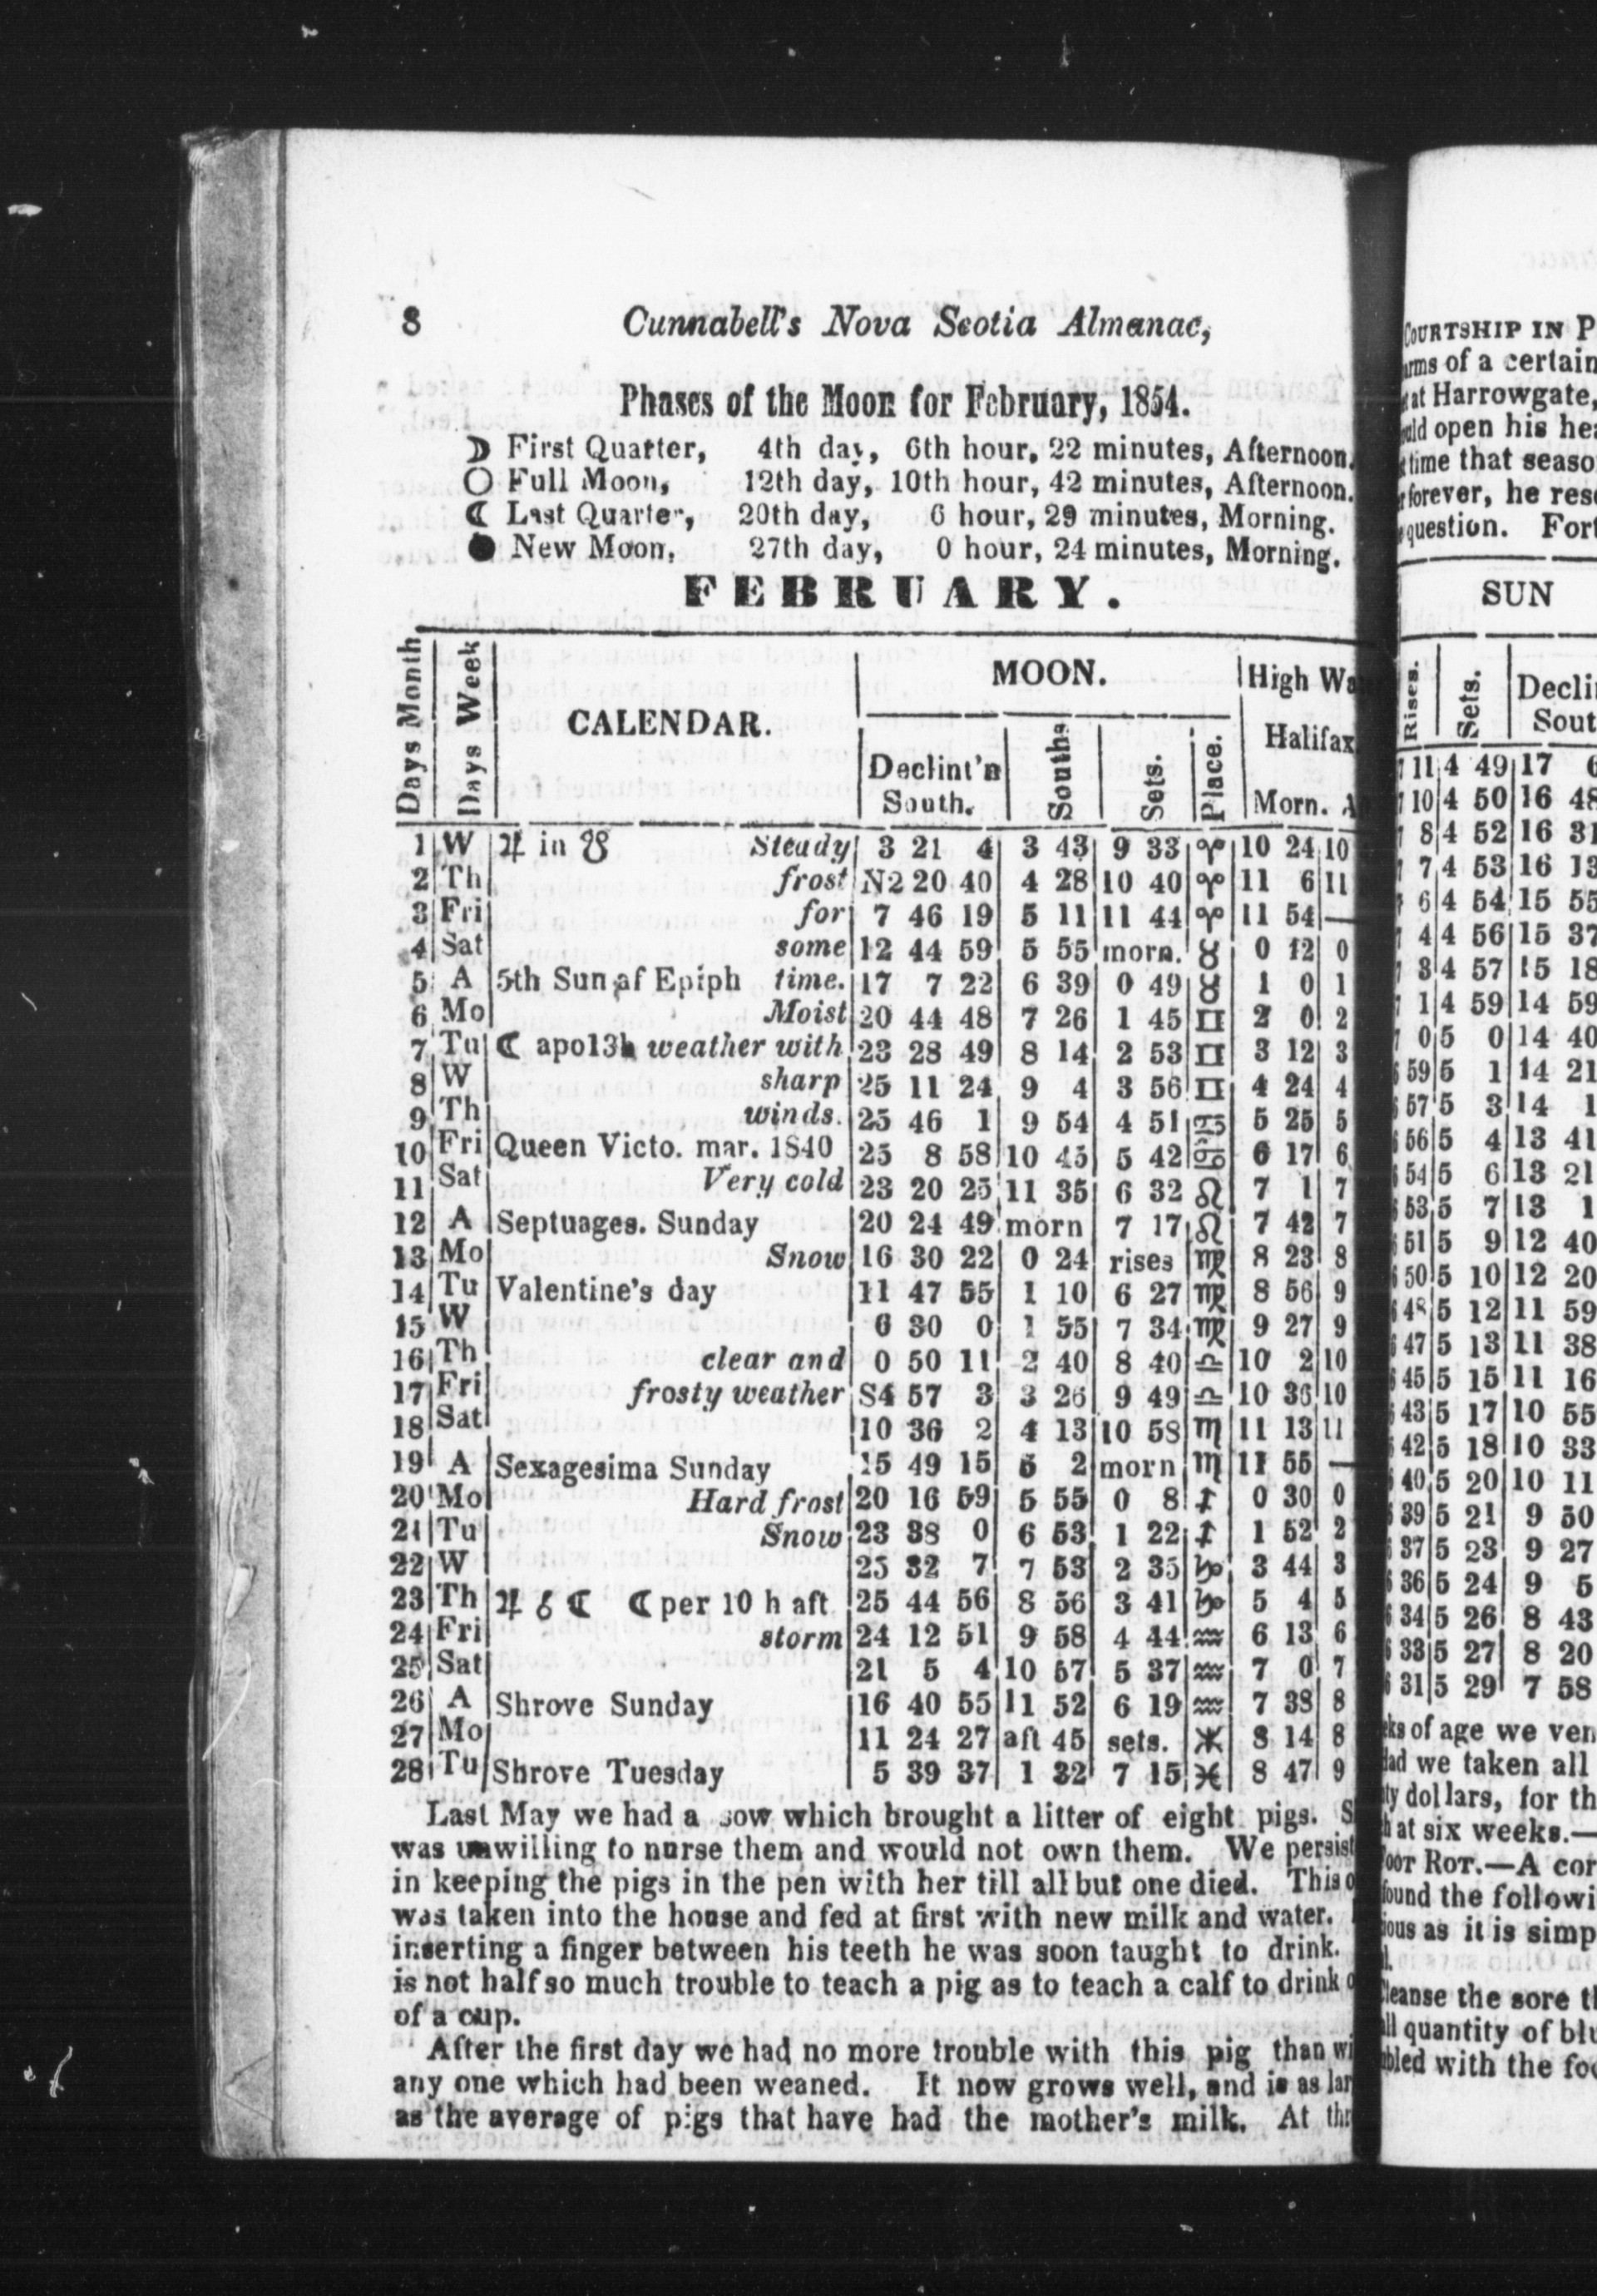 8 Cunnabell's Nova Scotia Almanac,
Phases of the Moon for February, 1854.
☽ First Quarter, 4th day, 6th hour, 22 minutes, Afternoon.
○ Full Moon, 12th day, 10th hour, 42 minutes, Afternoon.
☾ Last Quarter, 20th day, 6 hour, 29 minutes, Morning.
● New Moon, 27th day, 0 hour, 24 minutes, Morning.
FEBRUARY.
Days Month Days Week CALENDAR. MOON. High
Declint'n South. Souths Sets. Place. Halifax
Morn.
1 W ♃ in ☋ Steady 3 21 4 3 43 9 33 ♈ 10 24 10
2 Th frost N2 20 40 4 28 10 40 ♈ 11 6 11
3 Fri for 7 46 19 5 11 11 44 ♈ 11 54 —
4 Sat some 12 44 59 5 55 morn. ♉ 0 12 0
5 A 5th Sun af Epiph time. 17 7 22 6 39 0 49 ♉ 1 0 1
6 Mo Moist 20 44 48 7 26 1 45 ♊ 2 0 2
7 Tu ☾ apo13h weather with 23 28 49 8 14 2 53 ♊ 3 12 3
8 W sharp 25 11 24 9 4 3 56 ♊ 4 24 4
9 Th winds. 25 46 1 9 54 4 51 ♋ 5 25 5
10 Fri Queen Victo. mar. 1840 25 8 58 10 45 5 42 ♋ 6 17 6
11 Sat Very cold 23 20 25 11 35 6 32 ♌ 7 1 7
12 A Septuages. Sunday 20 24 49 morn 7 17 ♌ 7 42 7
13 Mo Snow 16 30 22 0 24 rises ♍ 8 23 8
14 Tu Valentine's day 11 47 55 1 10 6 27 ♍ 8 56 9
15 W 6 30 0 1 55 7 34 ♍ 9 27 9
16 Th clear and 0 50 11 2 40 8 40 ♎ 10 2 10
17 Fri frosty weather S4 57 3 3 26 9 49 ♎ 10 36 10
18 Sat 10 36 2 4 13 10 58 ♏ 11 13 11
19 A Sexagesima Sunday 15 49 15 5 2 morn ♏ 11 55 —
20 Mo Hard frost 20 16 59 5 55 0 8 ♐ 0 30 0
21 Tu Snow 23 38 0 6 53 1 22 ♐ 1 52 2
22 W 25 32 7 7 53 2 35 ♑ 3 44 3
23 Th ♃ ☌ ☾ ☾ per 10 h aft 25 44 56 8 56 3 41 ♑ 5 4 5
24 Fri storm 24 12 51 9 58 4 44 ♒ 6 13 6
25 Sat 21 5 4 10 57 5 37 ♒ 7 0 7
26 A Shrove Sunday 16 40 55 11 52 6 19 ♒ 7 38 8
27 Mo 11 24 27 aft 45 sets. ♓ 8 14 8
28 Tu Shrove Tuesday 5 39 37 1 32 7 15 ♓ 8 47 9
Last May we had a sow which brought a litter of eight pigs.
was unwilling to nurse them and would not own them. We persist
in keeping the pigs in the pen with her till all but one died. This
was taken into the house and fed at first with new milk and water.
inserting a finger between his teeth he was soon taught to drink.
is not half so much trouble to teach a pig as to teach a calf to drink
of a cup.
After the first day we had no more trouble with this pig than
any one which had been weaned. It now grows well, and is as
as the average of pigs that have had the mother's milk. At
COURTSHIP IN
of a certain
at Harrowgate,
open his
time that
forever, he
question.
SUN
Rises. Sets.
11 4 49 17
10 4 50 16 48
8 4 52 16 31
7 4 53 16 13
6 4 54 15 55
4 4 56 15 37
3 4 57 15 18
1 4 59 14 59
0 5 0 14 40
59 5 1 14 21
57 5 3 14 1
56 5 4 13 41
54 5 6 13 21
53 5 7 13 1
51 5 9 12 40
50 5 10 12 20
48 5 12 11 59
47 5 13 11 38
45 5 15 11 16
43 5 17 10 55
42 5 18 10 33
40 5 20 10 11
39 5 21 9 50
37 5 23 9 27
36 5 24 9 5
34 5 26 8 43
33 5 27 8 20
31 5 29 7 58
of age we
we taken all
dollars, for
at six weeks.—
ROT.—A
the
as it is
the sore
quantity of
with the